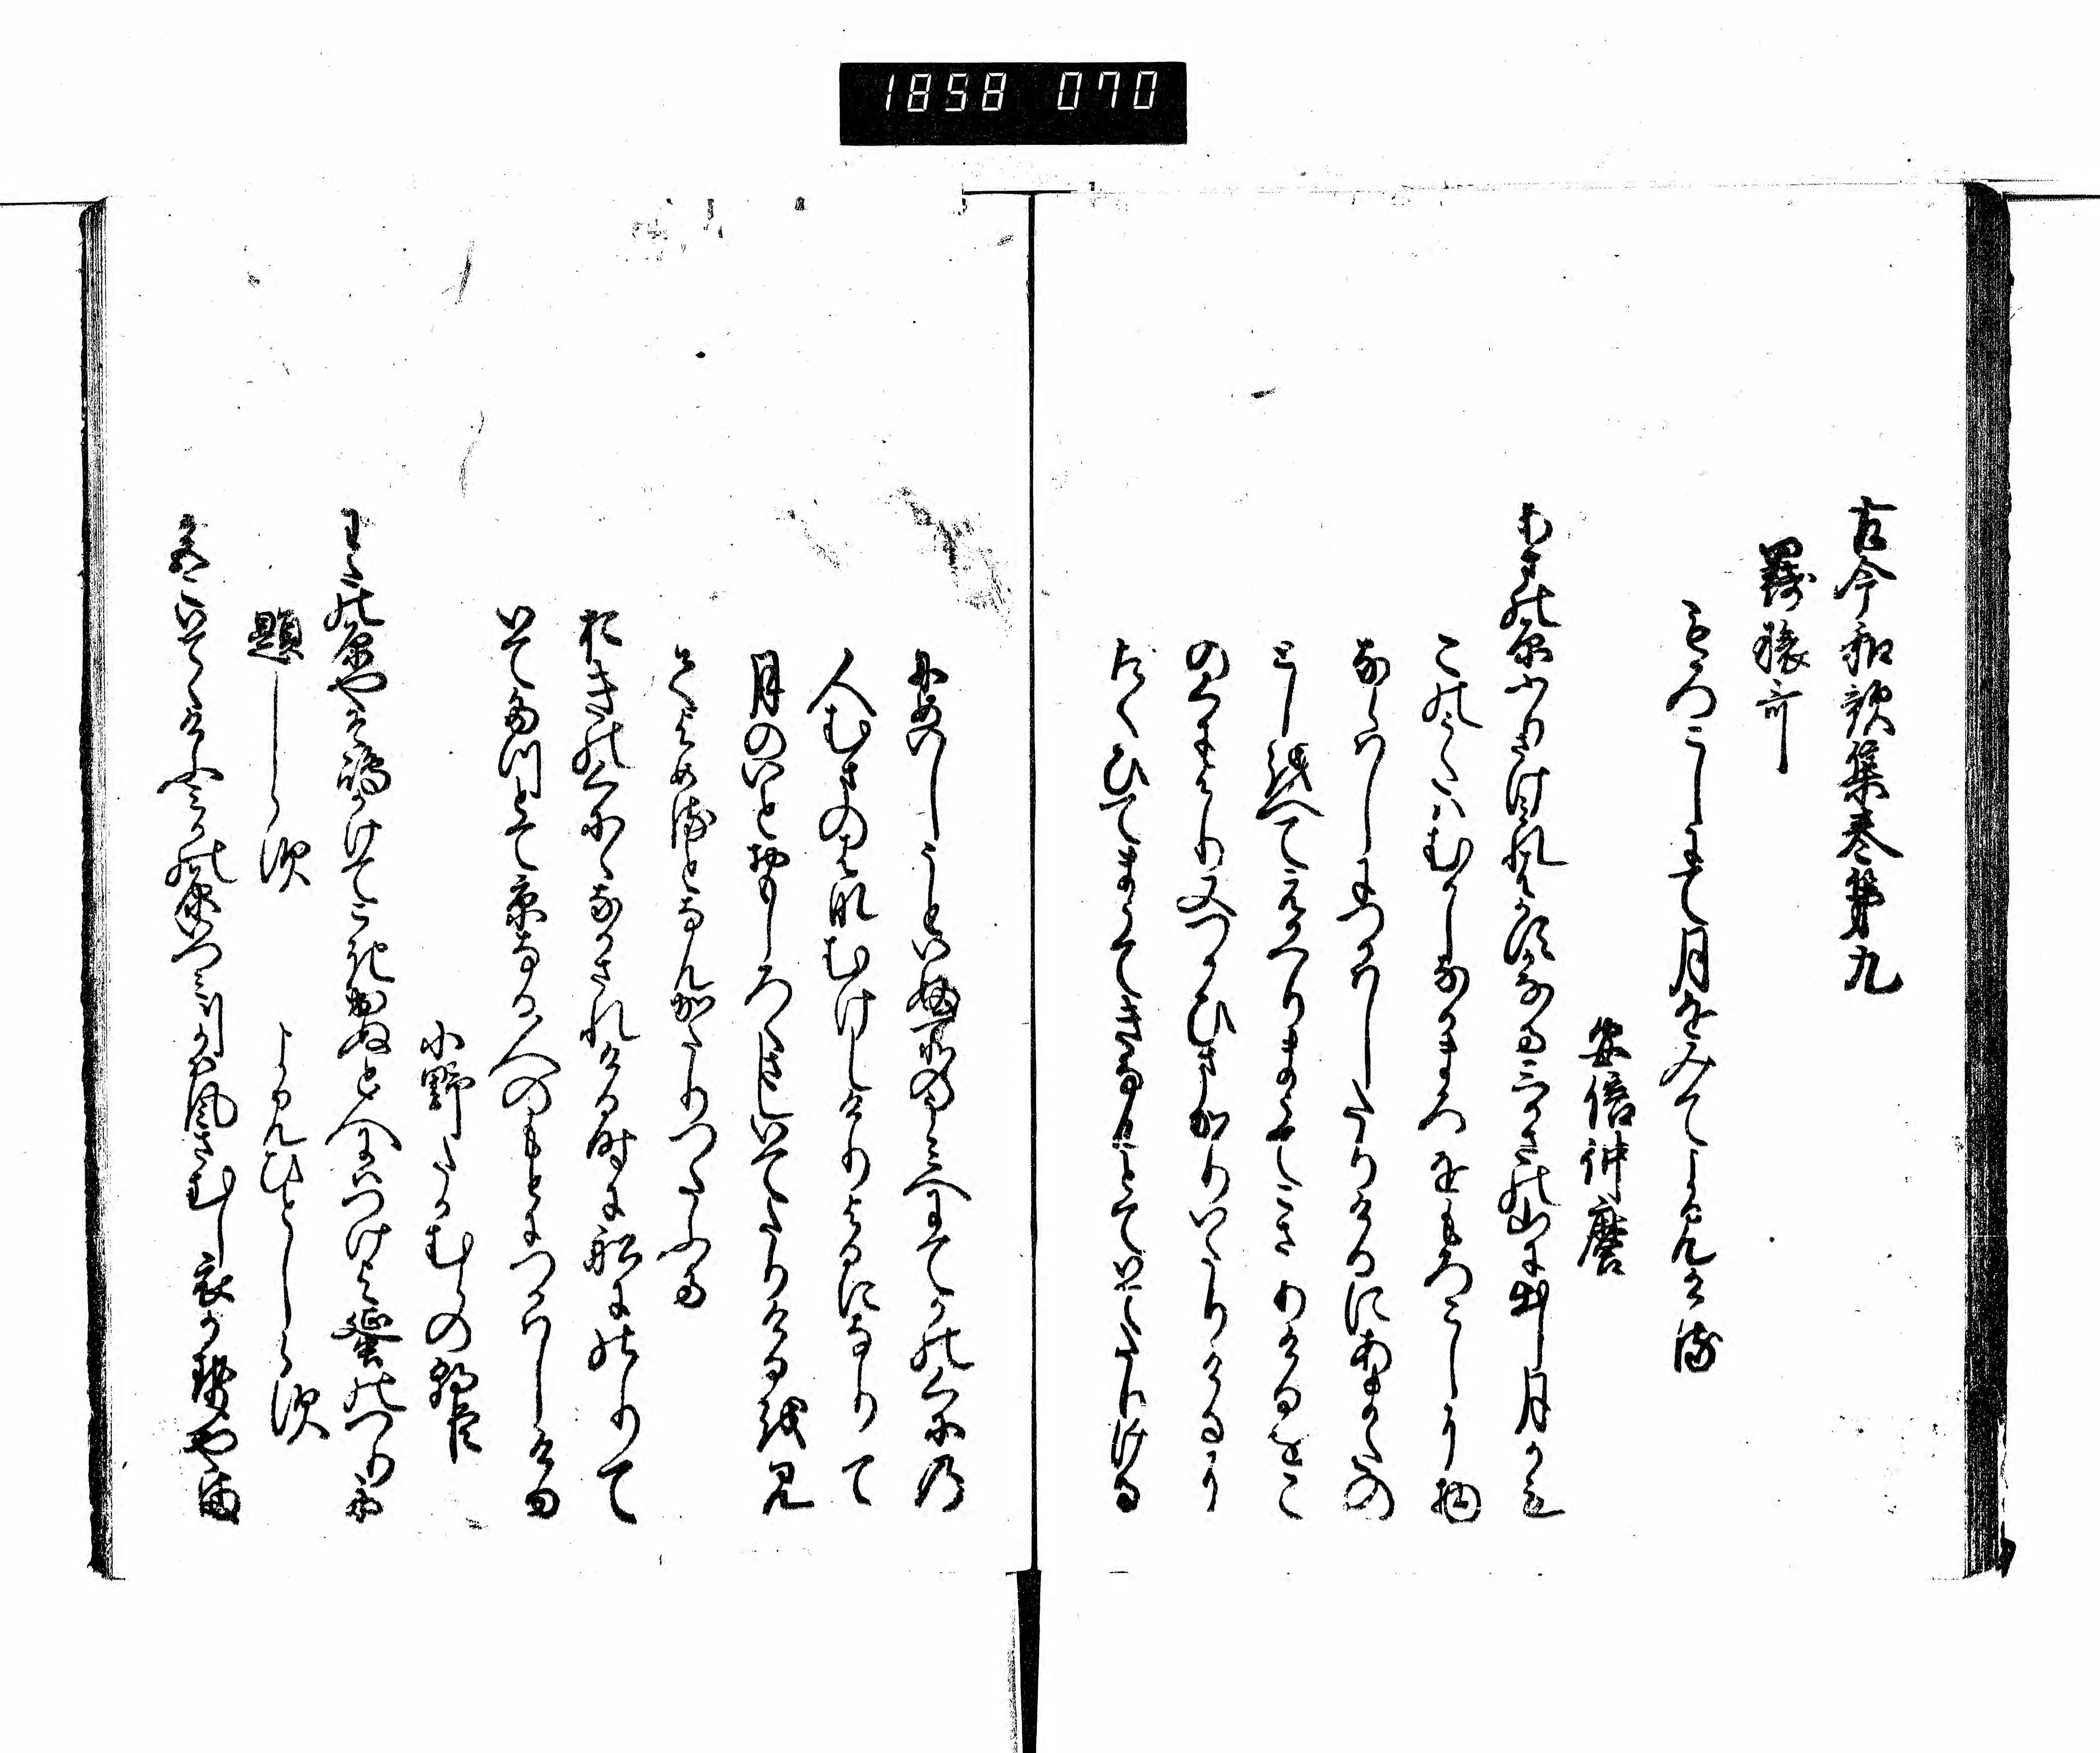 1858 070
古今和歌集巻第九
羇旅哥
もろこしにて月をみてよみける
安倍仲麿
あまの原ふりさけみれはかすかなる三かさの山に出し月かも
この哥ハむかしなかまろをもろこしに物
ならはしにつかはしたりけるにあまたの
としを経てえかへりまうてこさりけるをこ
のくにより又つかひまかりいたりけるに
たくひてまうてきなむとていてたちける
にめいしうといふ所のうみへにてかのくにの
人むまのはなむけしけりよるになりて
月のいとおもしろくさしいてたりけるを見
てよめるとなんかたりつたふる
おきのくにになかされける時に船にのりて
いてたつとて京なる人のもとにつかはしける
小野たかむらの朝臣
わたの原やそ嶋かけてこきいてぬと人にはつけよ蜑のつり舟
題しらす
よみひとしらす
都いてゝけふみかの原いつみ川かは風さむし衣かせやま